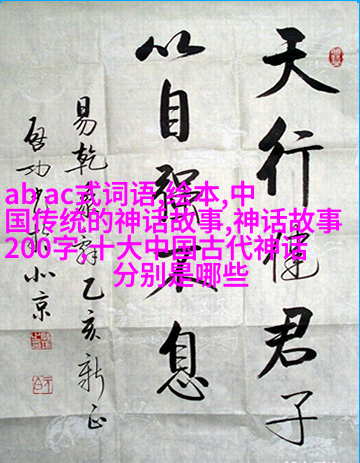 天行健君子
以自強不息
易乾象辞乙亥新正
啟功书於北京
abac式词语,绘本,中
国传统的神话故事,神话故事
200字,十大中国古代神话
分别是哪些